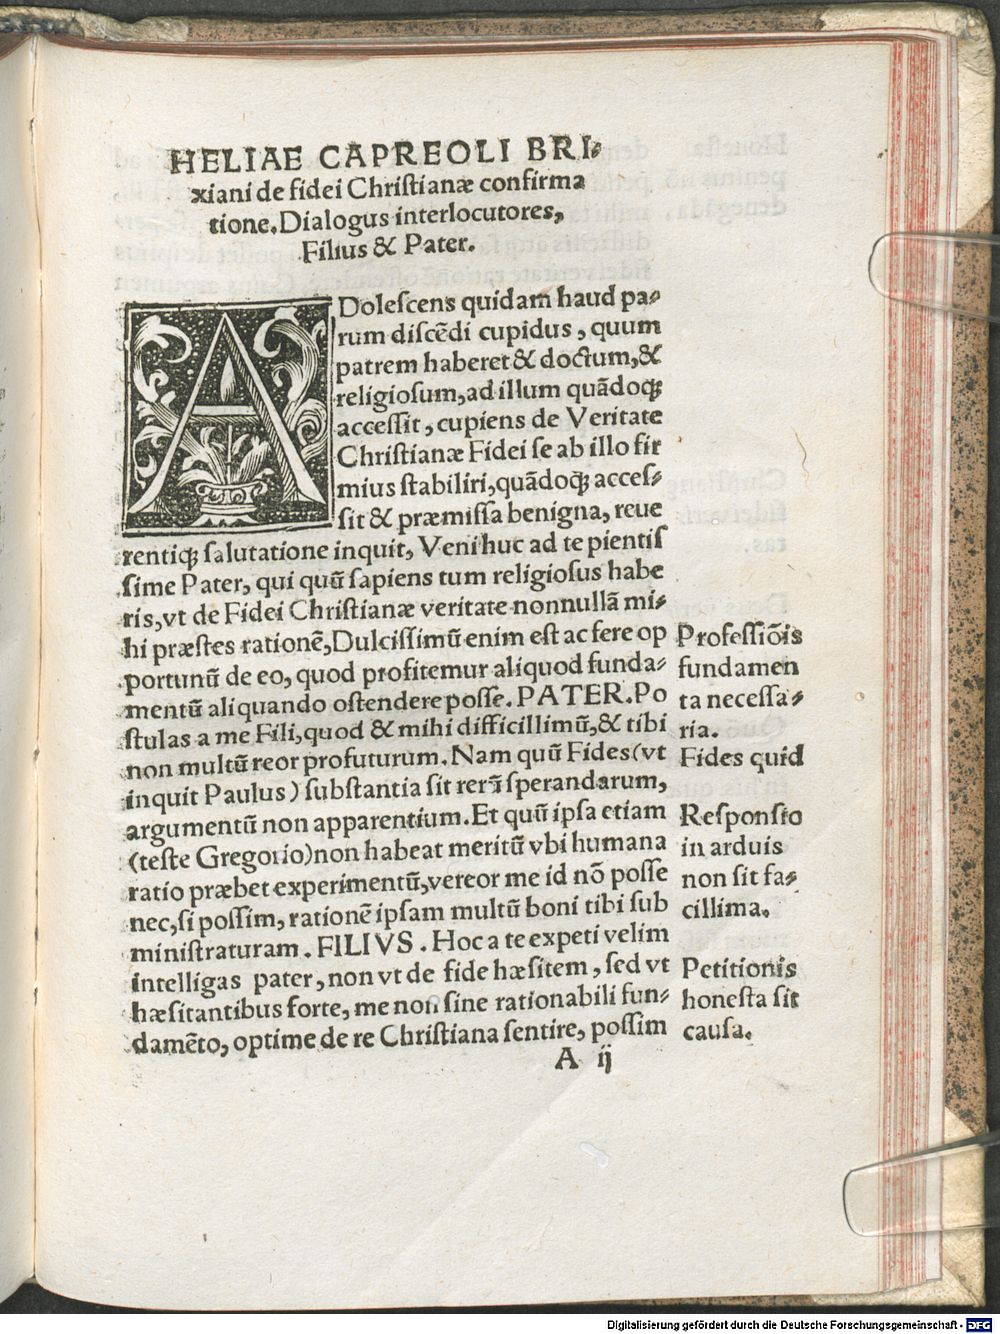 HELIAE CAPREOLI BRI-
xiani de fidei Christianæ confirma
tione. Dialogus interlocutores,
Filius & Pater.
ADolescens quidam haud pa-
rum discēdi cupidus, quum
patrem haberet & doctum, &
religiosum, ad illum quādoq;
accessit, cupiens de Veritate
Christianæ Fidei se ab illo fir
mius stabiliri, quādoq; acces-
sit & præmissa benigna, reue
rentiq; salutatione inquit, Veni huc ad te pientis
sime Pater, qui quū sapiens tum religiosus habe
ris, vt de Fidei Christianæ veritate nonnullā mi-
hi præstes rationē, Dulcissimū enim est ac fere op
portunū de eo, quod profitemur aliquod funda-
mentū aliquando ostendere posse. PATER. Po
stulas a me Fili, quod & mihi difficillimū, & tibi
non multū reor profuturum. Nam quū Fides (vt
inquit Paulus) substantia sit rerū sperandarum,
argumentū non apparentium. Et quū ipsa etiam
(teste Gregorio) non habeat meritū vbi humana
ratio præbet experimentū, vereor me id nō posse
nec, si possim, rationē ipsam multū boni tibi sub
ministraturam. FILIVS. Hoc a te expeti velim
intelligas pater, non vt de fide hæsitem, sed vt
hæsitantibus forte, me non sine rationabili fun-
damēto, optime de re Christiana sentire, possim
A ij
Professiōis
fundamen
ta necessa-
ria.
Fides quid
Responsio
in arduis
non sit fa-
cillima.
Petitionis
honesta sit
causa.
Digitalisierung gefördert durch die Deutsche Forschungsgemeinschaft - DFG